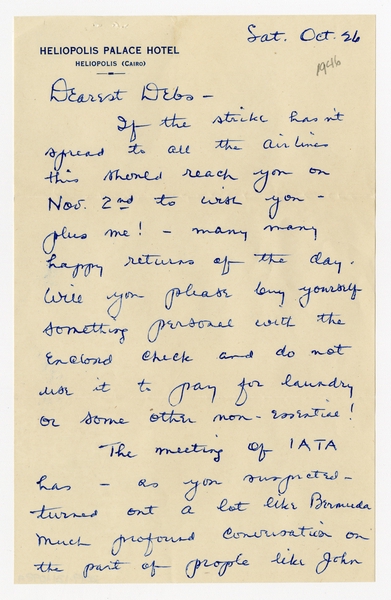 HELIOPOLIS PALACE HOTEL
HELIOPOLIS (CAIRO)
Sat. Oct. 26
1946
Dearest Debs -
If the strike hasn't
spread to all the airlines
this should reach you on
Nov. 2nd to wish you -
plus me! - many many
happy returns of the day.
Will you please buy yourself
something personal with the
enclosed check and do not
use it to pay for laundry
or some other non-essential!
The meeting of IATA
has - as you suspected -
turned out a lot like Bermuda
Much profound conversation on
the part of people like John